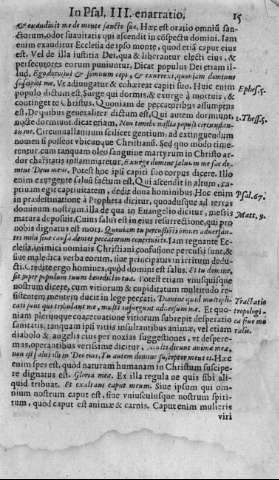 In Psal. III. enarratio. 15
& exaudiuit me de monte sancto suo. Hæc est oratio omniū san-
ctorum, odor suauitatis qui ascendit in cōspectu domini. Iam
enim exauditur Ecclesia de ipso monte, quod etiā caput eius
est. Vel de illa iustitia Dei, qua & liberantur electi eius, &
persecutores eorum puniuntur. Dicat populus Dei etiam il-
lud, Ego dormiui & somnum cepi, & exurrexi, quoniam dominus
suscepit me, Vt adiungatur & cohæreat capiti suo. Huic enim Ephes.5.
populo dictum est, Surge qui dormis & exurge à mortuis, &
continget te Christus. Quoniam de peccatoribus assumptus
est, De quibus generaliter dictum est, Qui autem dormiunt, 1.Thess.5.
nocte dormiunt dicat etiam, Non timebo millia populi circundan-
tium. Circumuallantium scilicet gentium, ad extinguendum
nomen si possent vbicunque Christianū. Sed quo modo time-
rentur, cum tanquam oleo sanguine martyrum in Christo ar-
dor charitatis inflammaretur, Exurge domine saluum me fac de-
us Deus meus. Potest hoc ipsi capiti suo corpus dicere. Illo
enim exurgente saluū factum est, Qui ascendit in altum, ca-
ptiuam egit captiuitatem, dedit dona hominibus. Hoc enim Psal.67.
in prædestinatione à Propheta dicitur, quousque ad terras
dominum nostrū illa de qua in Euangelio dicitur, messis Matt.9.
matura deposuit. Cuius salus est in eius resurrectione, qui pro
nobis dignatus est mori. Quoniam tu percussisti omnes aduersan-
tes mihi sine causa dentes peccatorum contriuisti. Iam regnante Ec-
clesia, inimici nominis Christiani confusione percussi sunt, &
siue maledica verba eorum, siue principatus in irritum dedu-
cti. Credite ergo homines, quod domini est salus, Et tu domine,
sit super populum tuum benedictio tua. Potest etiam vnusquisque
nostrum dicere, cum vitiorum & cupiditatum multitudo re-
sistentem, mentem ducit in lege peccati, Domine quid multipli- Tractatio
cati sunt qui tribulant me, multi insurgunt aduersum me. Et quo- tropologi-
niam plerunque coaceruatione vitiorum subrepit desperatio ca siue mo
sanitatis, tanquam ipsis vitiis insultantibus animæ, vel etiam ralis.
diabolo & angelis eius per noxias suggestiones, vt despere-
mus, operantibus verissime dicitur, Multi dicunt animæ meæ,
non est salus illi in Deo eius, Tu autem domine susceptor meus es. Hæc
enim spes est, quod naturam humanam in Christum suscipe-
re dignatus est. Gloria mea. Ex illa regula ne quis sibi ali-
quid tribuat. Et exaltans caput meum. Siue ipsum qui om-
nium nostrum caput est, siue vniuscuiusque nostrum spiri-
tum, quod caput est animæ & carnis. Caput enim mulieris
viri